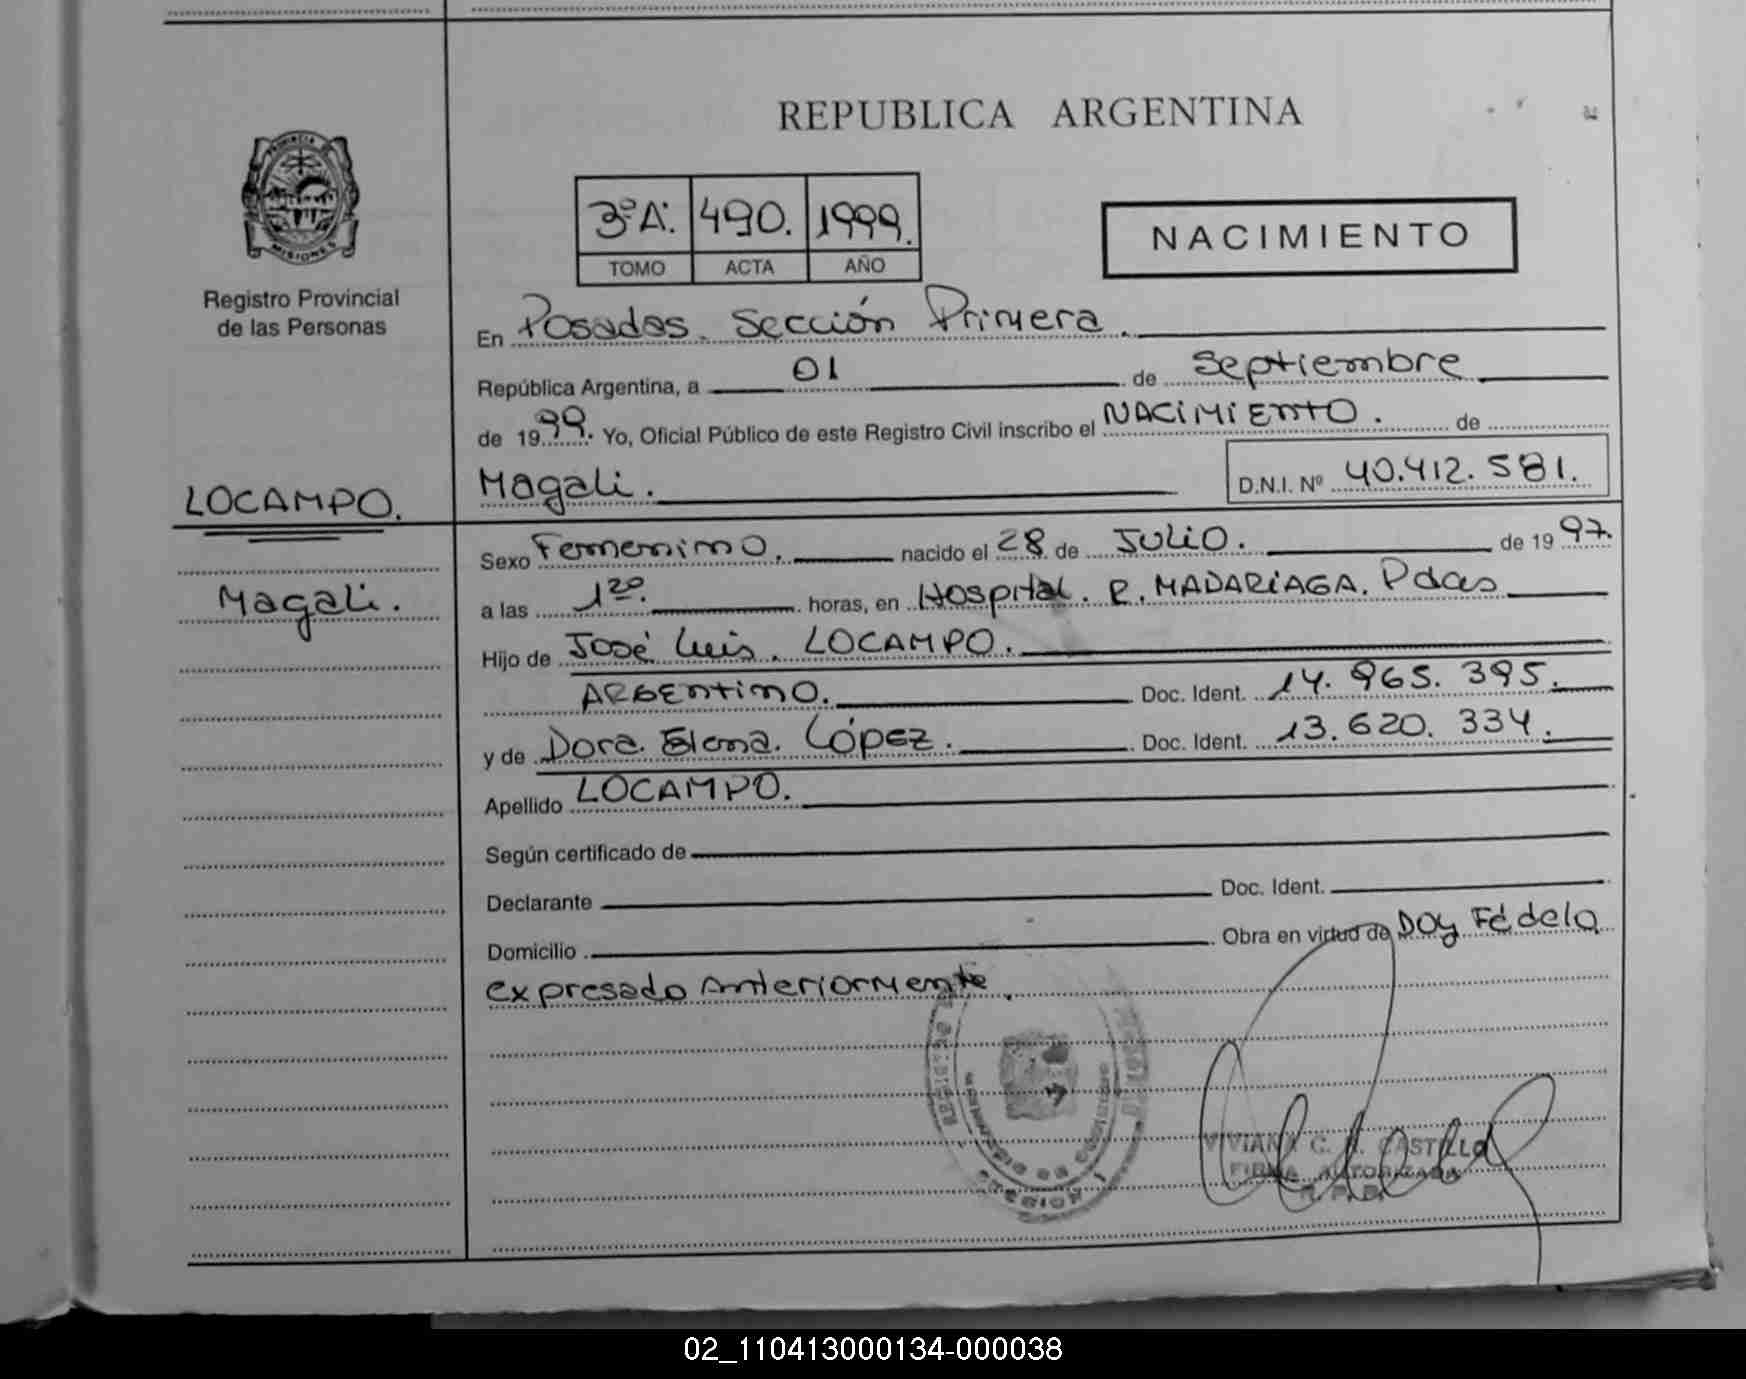 REPUBLICA ARGENTINA
PROVINCIA DE
MISIONES
Registro Provincial
de las Personas
3º A. 490. 1999.
TOMO ACTA AÑO
NACIMIENTO
En Posadas. Sección Primera.
República Argentina, a 01 de Septiembre
de 1999. Yo, Oficial Público de este Registro Civil inscribo el NACIMIENTO. de
Magali. D.N.I. Nº 40.412.581.
LOCAMPO.
Magali.
Sexo Femenino. nacido el 28 de Julio. de 1997.
a las 120. horas, en Hospital. R. MADARIAGA. Pdas
Hijo de José Luis. LOCAMPO.
ARGENTINO. Doc. Ident. 14.965.395.
y de Dora. Elena. López. Doc. Ident. 13.620.334.
Apellido LOCAMPO.
Según certificado de
Declarante Doc. Ident.
Domicilio Obra en virtud de Doy Fé delo
expresado Anteriormente.
VIVIANA C. CASTILLO
FIRMA AUTORIZADA
R. P. P.
02_110413000134-000038